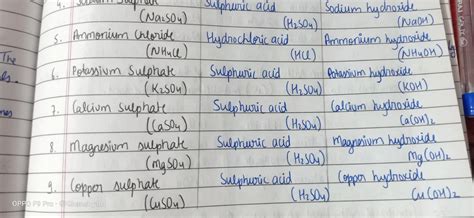 4. Sodium Sulphate Sulphuric acid Sodium hydroxide
(Na₂SO₄) (H₂SO₄) (NaOH)
5. Ammonium Chloride Hydrochloric acid Ammonium hydroxide
(NH₄Cl) (HCl) (NH₄OH)
The
6. Potassium Sulphate Sulphuric acid Potassium hydroxide
(K₂SO₄) (H₂SO₄) (KOH)
7. Calcium Sulphate Sulphuric acid Calcium hydroxide
(CaSO₄) (H₂SO₄) Ca(OH)₂
8. Magnesium sulphate Sulphuric acid Magnesium hydroxide
(MgSO₄) (H₂SO₄) Mg(OH)₂
9. Copper sulphate Sulphuric acid Copper hydroxide
(CuSO₄) (H₂SO₄) Cu(OH)₂
OPPO F9 Pro